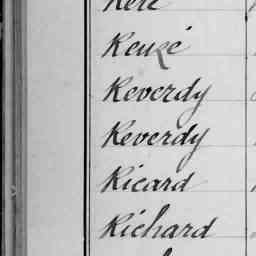 Reuzé
Reverdy
Reverdy
Ricard
Richard